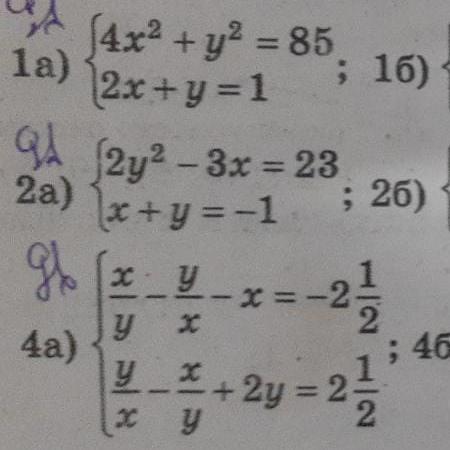 1а) { 4x² + y² = 85
2x + y = 1 ; 1б) {
2а) { 2y² − 3x = 23
x + y = −1 ; 2б) {
4а) { x/y − y/x − x = −2 1/2
y/x − x/y + 2y = 2 1/2 ; 4б